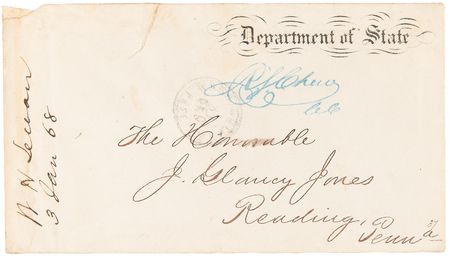 Department of State
R S Chew
CC
The Honorable
J. Glancy Jones
Reading,
Penna
W H Sewar
3 Jan 68